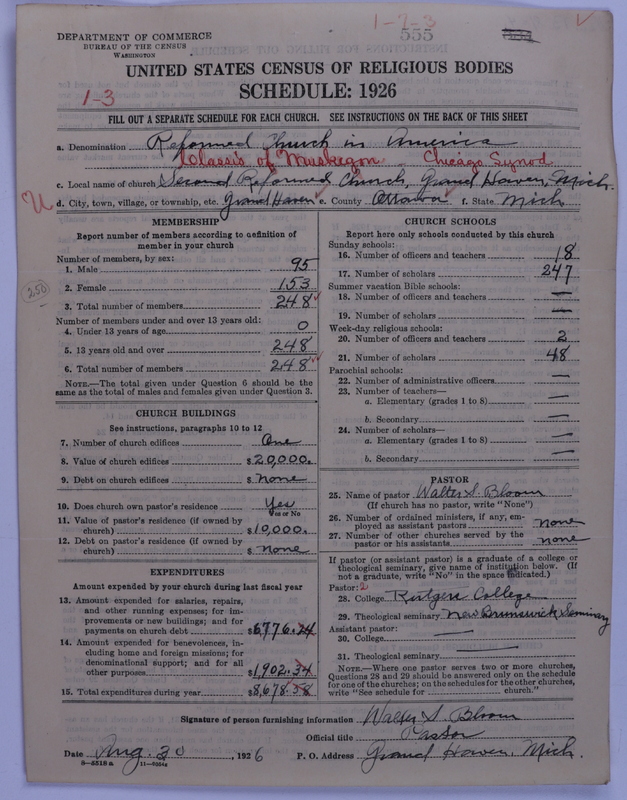 1-7-3
555
DEPARTMENT OF COMMERCE
BUREAU OF THE CENSUS
WASHINGTON
UNITED STATES CENSUS OF RELIGIOUS BODIES
SCHEDULE: 1926
1-3
FILL OUT A SEPARATE SCHEDULE FOR EACH CHURCH. SEE INSTRUCTIONS ON THE BACK OF THIS SHEET
a. Denomination Reformed Church in America
Classis of Muskegon - Chicago Synod
c. Local name of church Second Reformed Church, Grand Haven, Mich.
d. City, town, village, or township, etc. Grand Haven e. County Ottawa f. State Mich
MEMBERSHIP
Report number of members according to definition of member in your church
Number of members, by sex:
1. Male 95
2. Female 153
3. Total number of members 248
250
Number of members under and over 13 years old:
4. Under 13 years of age 0
5. 13 years old and over 248
6. Total number of members 248
NOTE.—The total given under Question 6 should be the same as the total of males and females given under Question 3.
CHURCH BUILDINGS
See instructions, paragraphs 10 to 12
7. Number of church edifices One
8. Value of church edifices $20,000.
9. Debt on church edifices $ None
10. Does church own pastor's residence? Yes
Yes or No
11. Value of pastor's residence (if owned by church) $10,000.
12. Debt on pastor's residence (if owned by church) $ None
EXPENDITURES
Amount expended by your church during last fiscal year
13. Amount expended for salaries, repairs, and other running expenses; for improvements or new buildings; and for payments on church debt $6776.24
14. Amount expended for benevolences, including home and foreign missions; for denominational support; and for all other purposes $1,902.34
15. Total expenditures during year $8,678.58
CHURCH SCHOOLS
Report here only schools conducted by this church
Sunday schools:
16. Number of officers and teachers 18
17. Number of scholars 247
Summer vacation Bible schools:
18. Number of officers and teachers —
19. Number of scholars —
Week-day religious schools:
20. Number of officers and teachers 2
21. Number of scholars 48
Parochial schools:
22. Number of administrative officers —
23. Number of teachers—
a. Elementary (grades 1 to 8) —
b. Secondary —
24. Number of scholars—
a. Elementary (grades 1 to 8) —
b. Secondary —
PASTOR
25. Name of pastor Walter S. Bloom
(If church has no pastor, write "None")
26. Number of ordained ministers, if any, employed as assistant pastors none
27. Number of other churches served by the pastor or his assistants none
If pastor (or assistant pastor) is a graduate of a college or theological seminary, give name of institution below. (If not a graduate, write "No" in the space indicated.)
Pastor: 2
28. College Rutgers College
29. Theological seminary New Brunswick Seminary
Assistant pastor:
30. College —
31. Theological seminary —
NOTE.—Where one pastor serves two or more churches, Questions 28 and 29 should be answered only on the schedule for one of the churches; on the schedules for the other churches, write "See schedule for church."
Signature of person furnishing information Walter S. Bloom
Official title Pastor
Date Aug. 20, 1926 P. O. Address Grand Haven, Mich.
8-5518a